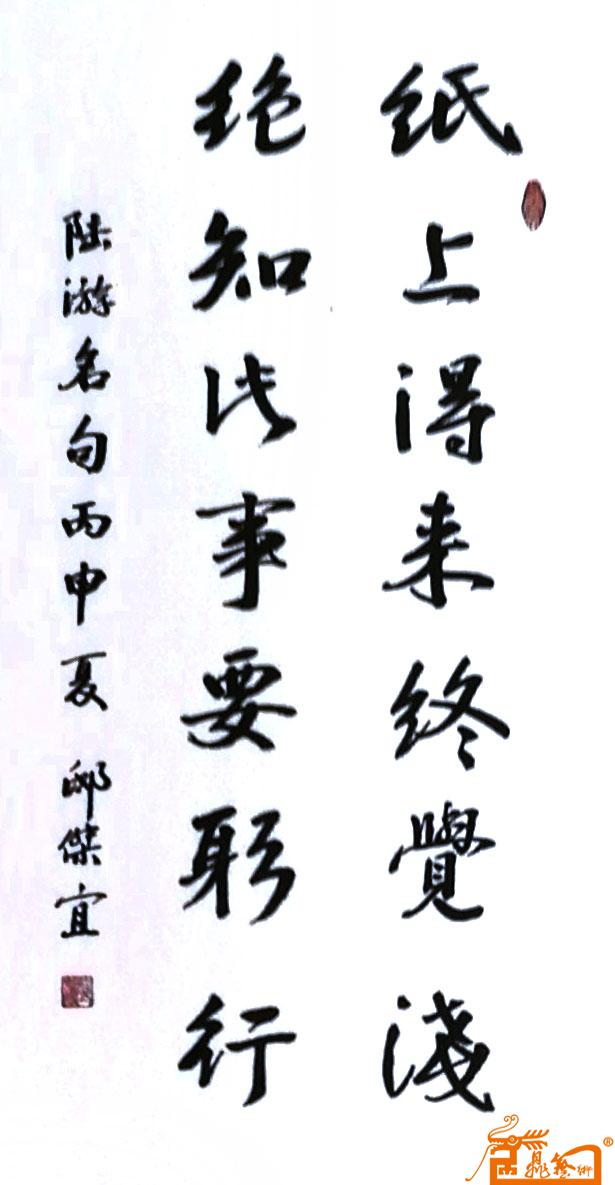 纸上得来终覺淺
绝知此事要躬行
陆游名句丙申夏 邱傑宜